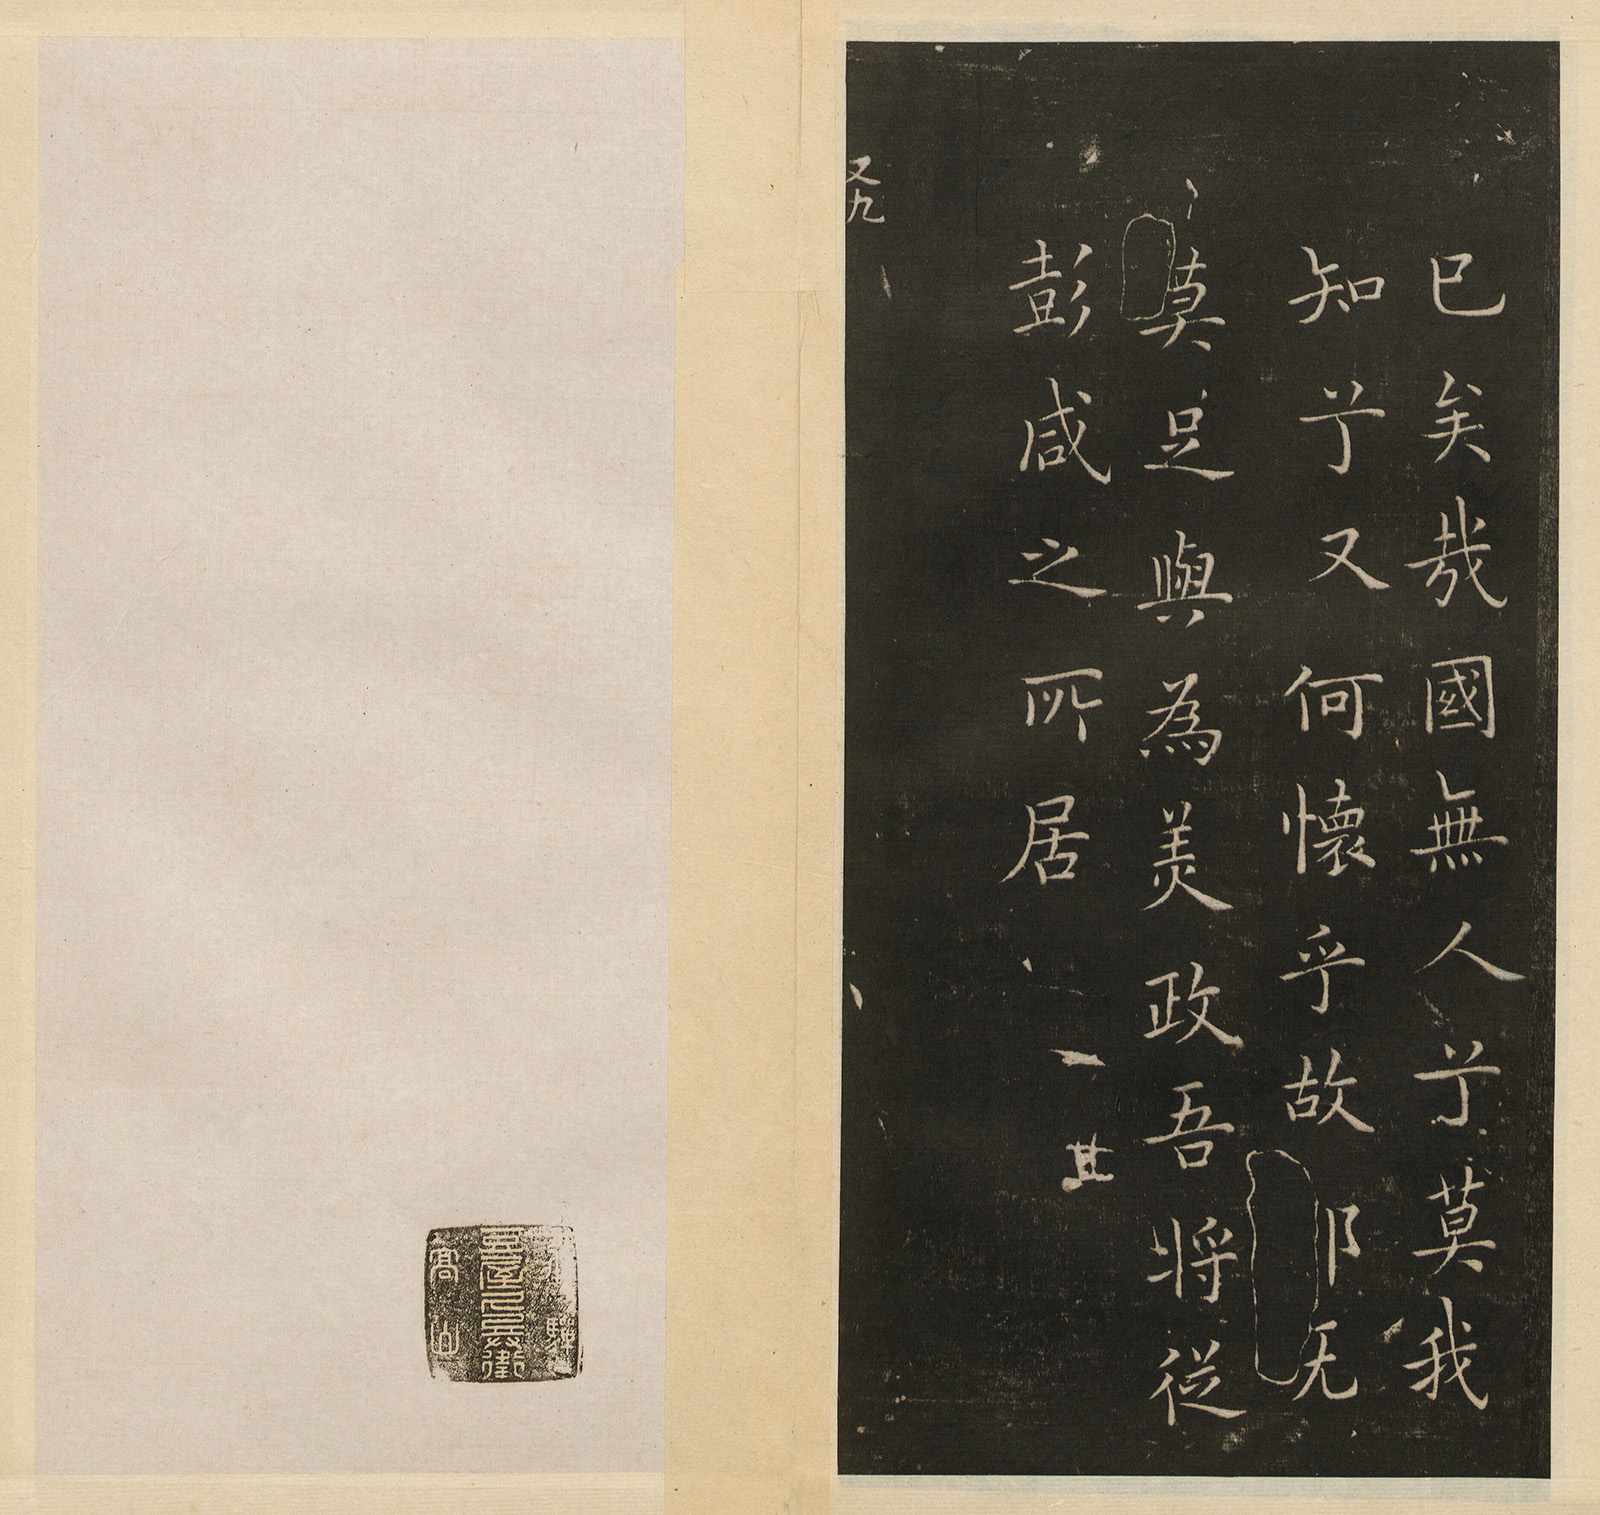 已矣哉國無人兮莫我
知兮又何懷乎故
莫足與為美政吾將從
彭咸之所居
其
又九